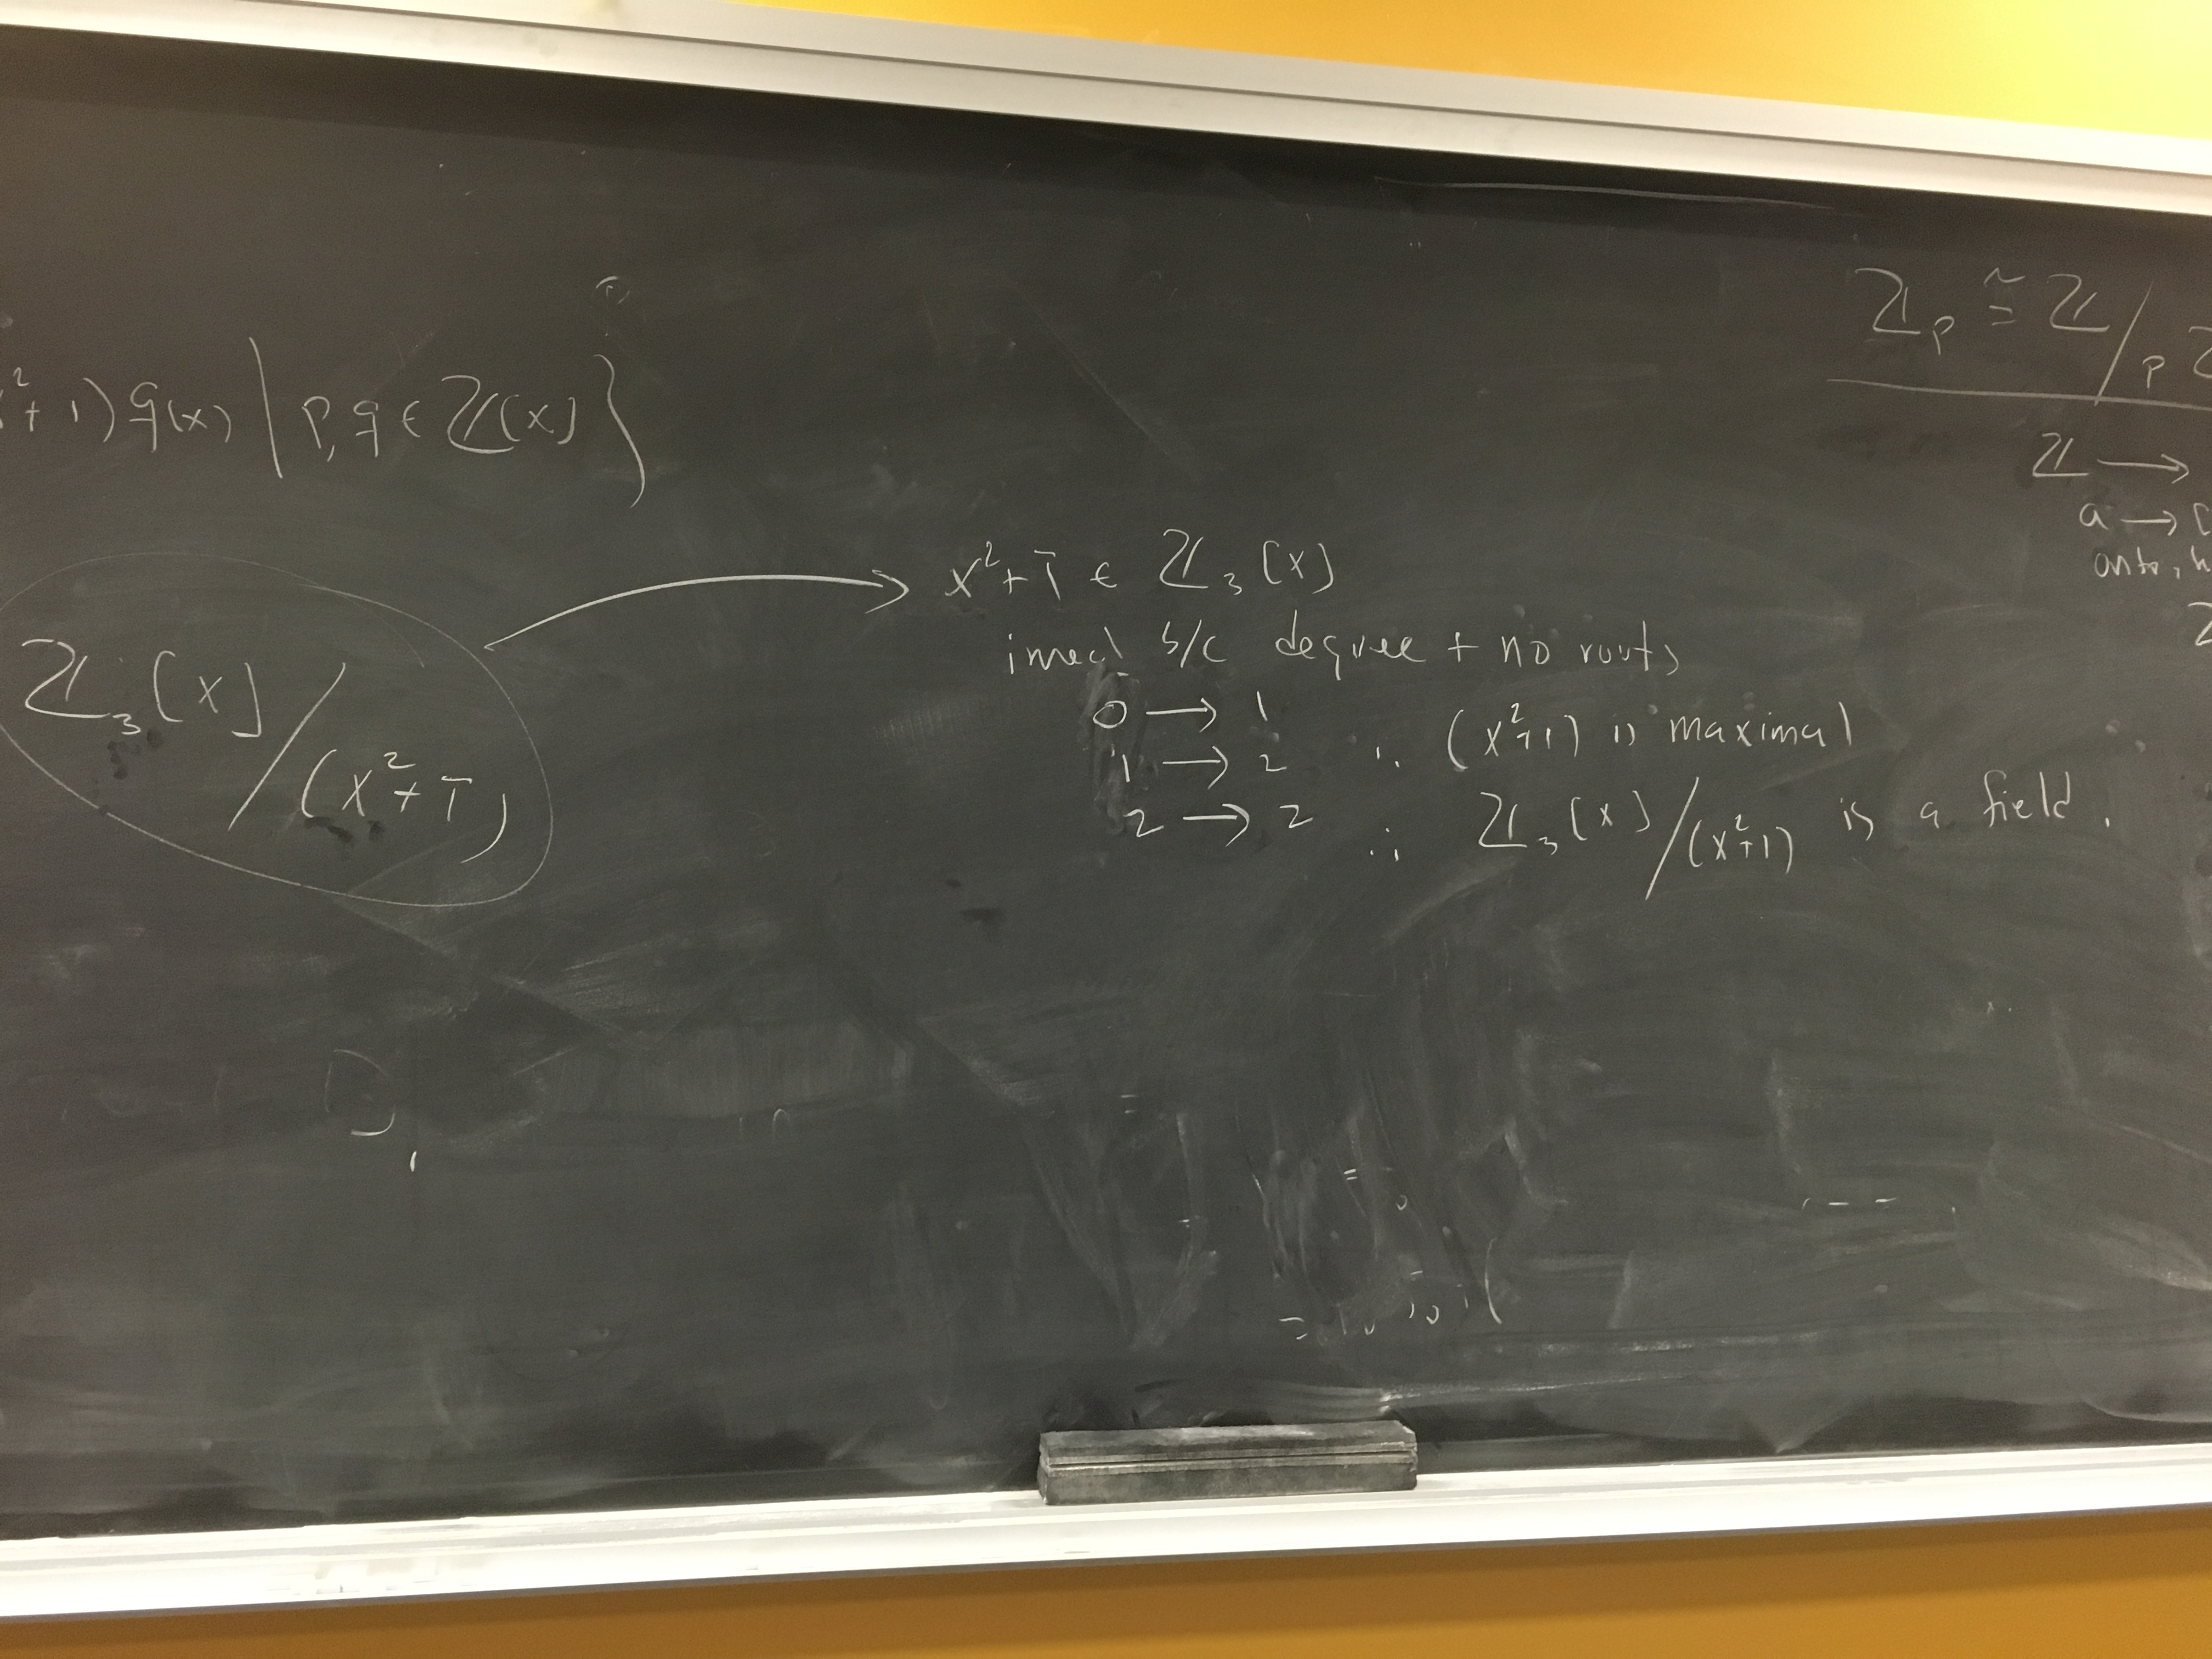 ²+1) q(x) | p, q ∈ ℤ[x] }
ℤ₃[x] / (x²+1̄)
x²+1̄ ∈ ℤ₃[x]
irred b/c degree + no roots
0 → 1
1 → 2 ∴ (x²+1) is maximal
2 → 2 ∴ ℤ₃[x] / (x²+1) is a field.
ℤₚ ≅ ℤ / pℤ
ℤ →
a → [
onto, h